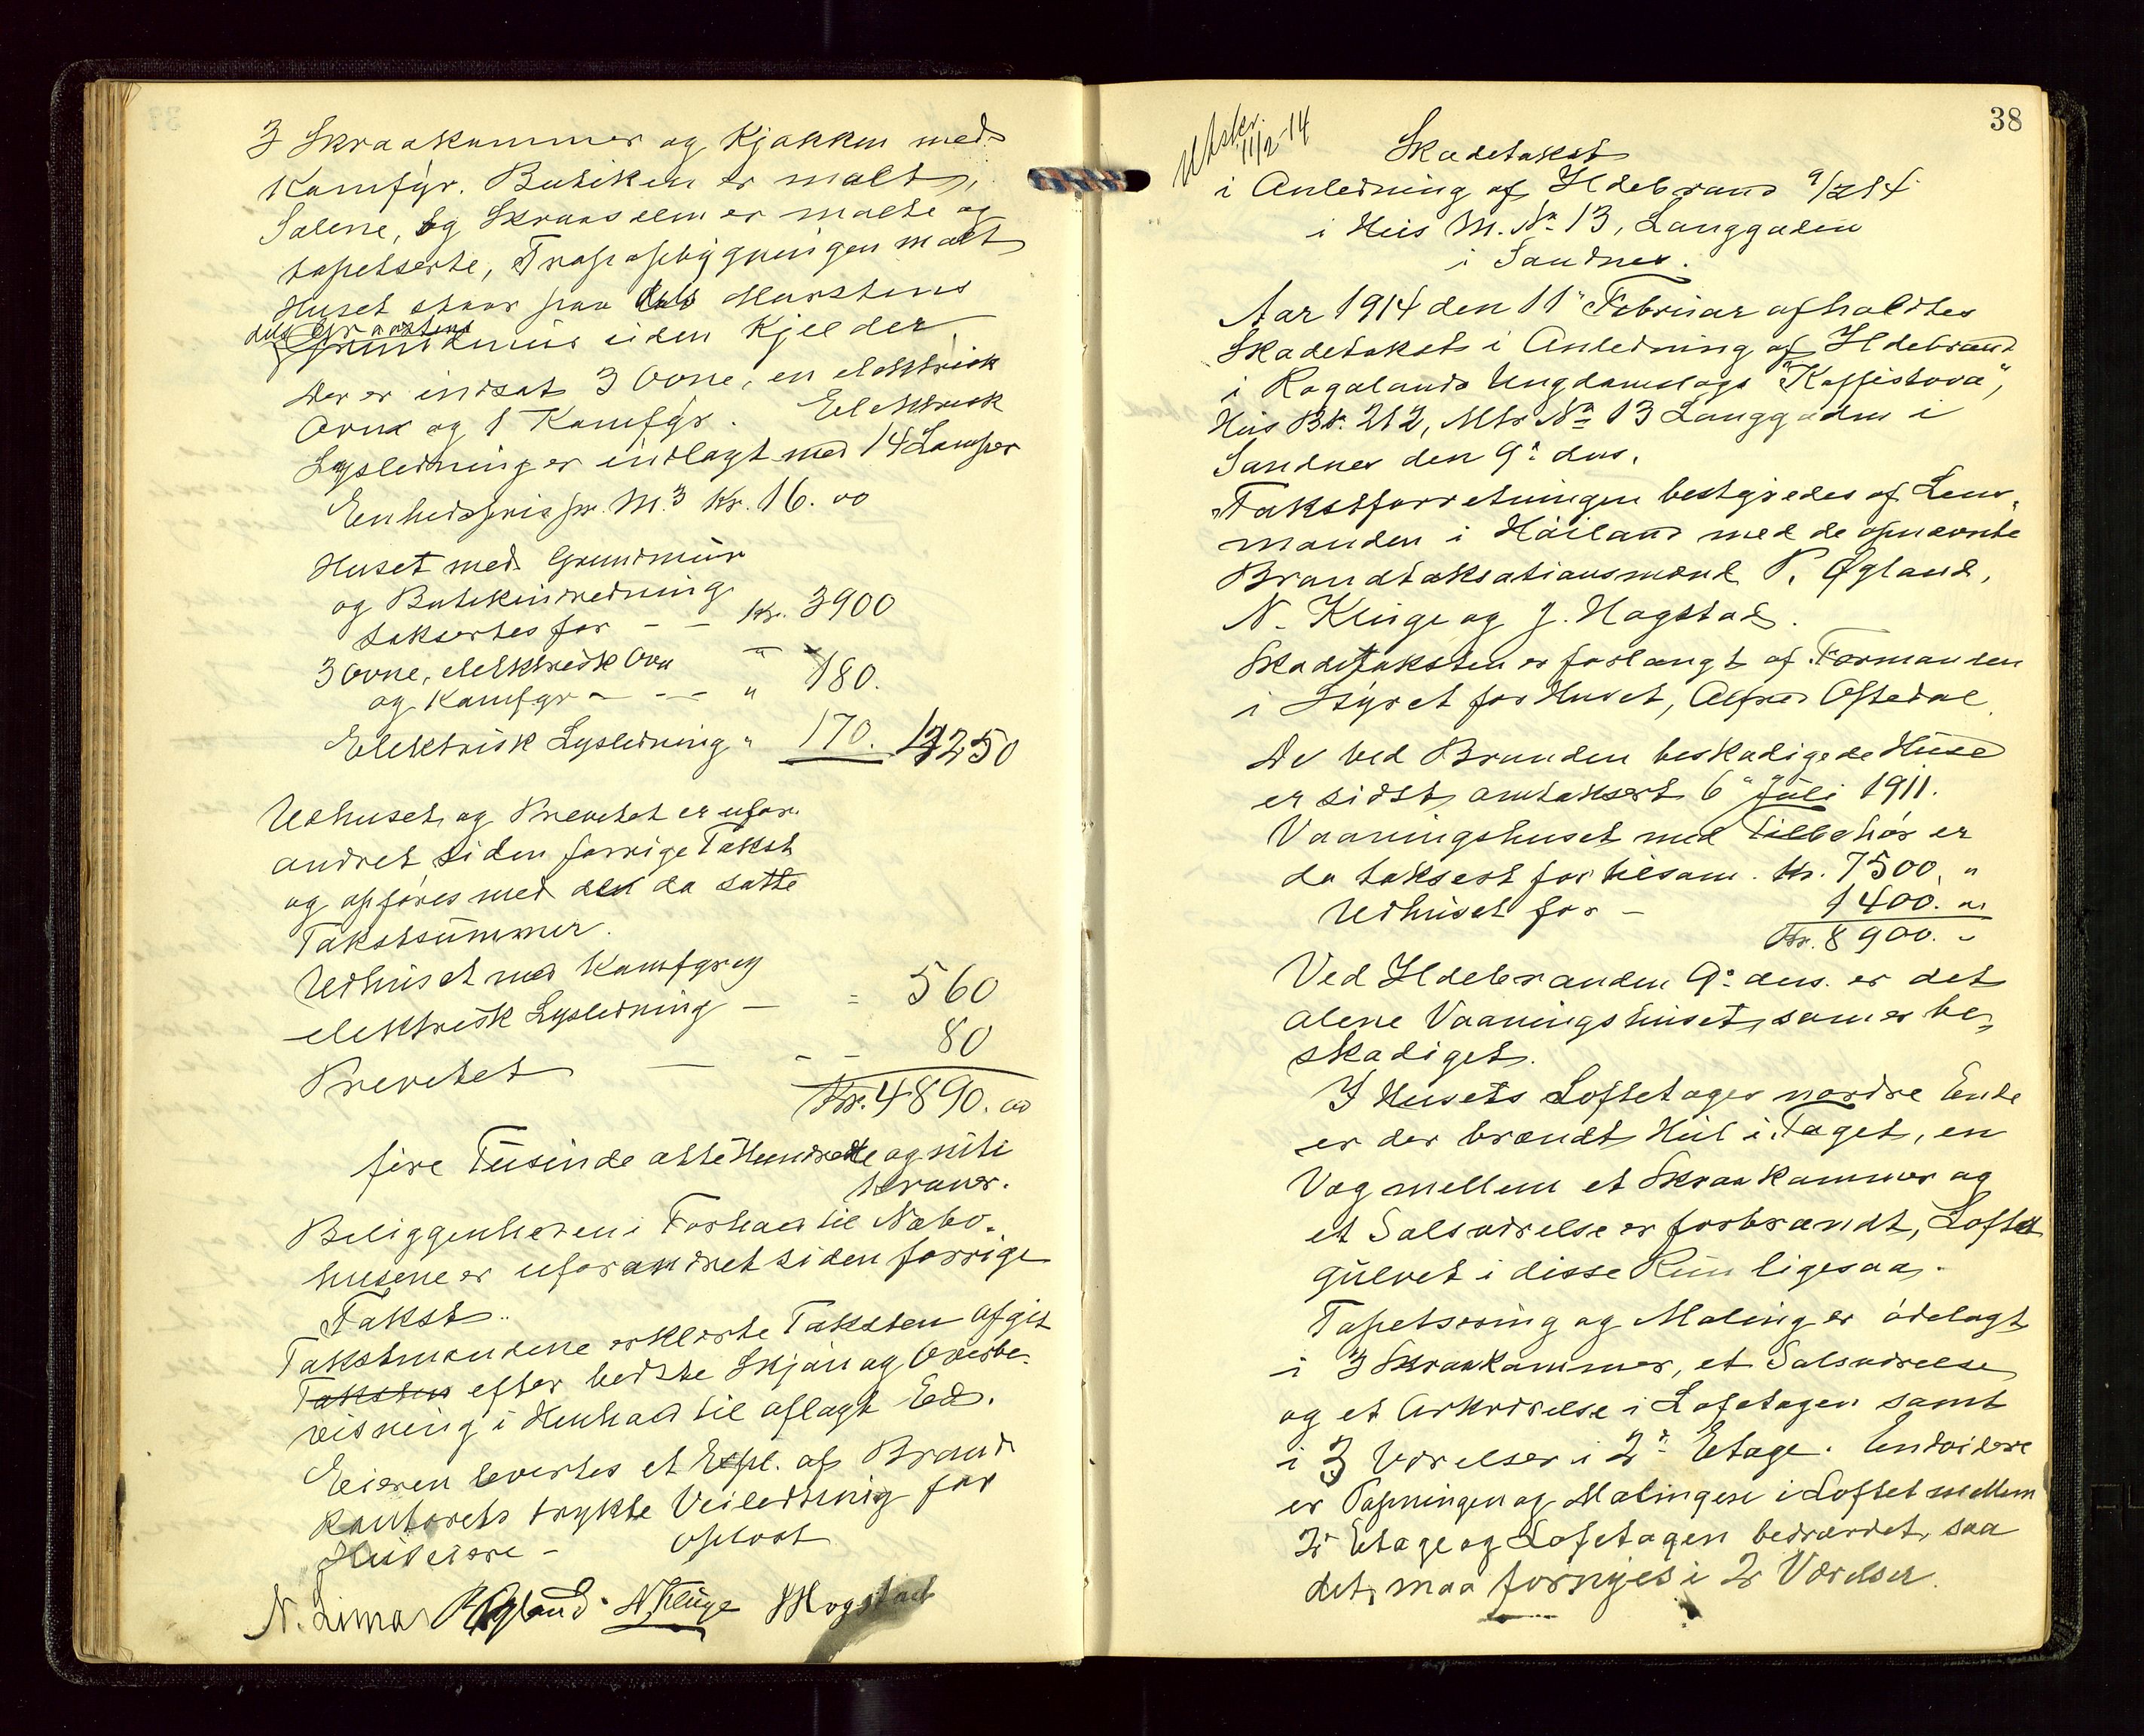 3 Skraakammer og Kjøkken med
Kamfyr. Butiken er malt,
Salene, og Skraasalen er malte og
tapetserte, Trapopbygningen malt
Huset staar paa dels Murstens
dels Graastens
Grundmur uden Kjelder.
Der er indsat 3 Ovne, en elektrisk
Ovn og 1 Kamfyr. Elektrisk
Lysledning er indlagt med 14 Lamper
Enhedspris pr. M.3 Kr. 16.00
Huset med Grundmur
og Butikindredning
takseres for - - Kr. 3900
3 Ovne, elektrisk Ovn
og Kamfyr - - - " 180.
Elektrisk Lysledning " 170. 4250
Udhuset og Brevetet er ufor-
andret siden forrige Takst
og opføres med den da satte
Takstsummer.
Udhuset med Kamfyr og
elektrisk Lysledning - = 560
Brevetet - - - 80
Kr. 4890.00
fire Tusinde otte Hundrede og niti
Kroner.
Beliggenheden i Forhold til Nabo-
husene er uforandret siden forrige
Takst.
Takstmændene erklærte Taksten afgit
Taksten efter bedste Skjøn og Overbe-
visning i Henhold til aflagt Ed.
Eieren leveres et Expl. af Brand
kontorets trykte Veiledning for
Huseiere - Oplæst
N. Lima P Øgland N. Kluge J Hogstad
38
Utskr.
11/2-14
Skadetakst
i Anledning af Ildebrand 9/2 14
i Hus M. No 13, Langgaden
i Sandnes.
Aar 1914 den 11te Februar afholdtes
Skadetakst i Anledning af Ildebrand
i Rogalands Ungdomslags "Kaffistova",
Hus Br. 212, Mtr No 13 Langgaden i
Sandnes den 9: ds.
Takstforretningen bestyredes af Lens-
manden i Høiland med de opnævnte
Brandtaksationsmænd P. Øgland,
N. Kluge og J. Hogstad.
Skadetaksten er forlangt af Formanden
i Styret for Huset, Alfred Oftedal
De ved Branden beskadigede Huse
er sidst omtaksert 6te Juli 1911.
Vaaningshuset med Tilbehør er
da taksert for tilsam. Kr. 7500. "
Udhuset for - 1400. "
Kr. 8900. -
Ved Ildebranden 9: ds. er det
alene Vaaningshuset, som er be-
skadiget.
I Husets Loftetages nordre Ende
er der brændt Hul i Taget, en
Væg mellem et Skraakammer og
et Salsværelse er forbrændt, Loftet
gulvet i disse Rum ligesaa.
Tapetsering og Maling er ødelagt
i 3 Skraakammer, et Salsværelse
og et Arkværelse i Lofetagen samt
i 3 Værelser i 2den Etage. Endvidere
er Papningen og Malingen i Loftet mellem
2den Etage og Lofetagen bedærvet, saa
det, maa fornyes i 2 Værelser.